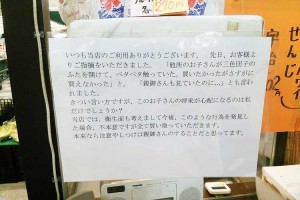 いつも当店のご利用ありがとうございます。 先日、お客様より
ご指摘をいただきました。「他所のお子さんが三色団子の
ふたを開けて、ベタベタ触っていた。買いたかったがさすがに
買えなかった」と。「親御さんも見ていたのに…」とも言わ
れました。
きつい言い方ですが、このお子さんの将来が心配になるのは私
だけでしょうか？
当店では、衛生面も考えまして今後、このような行為を発見し
た場合、不本意ですが全て買い取っていただきます。
本来なら注意やしつけは親御さんのすることだと思ってます。